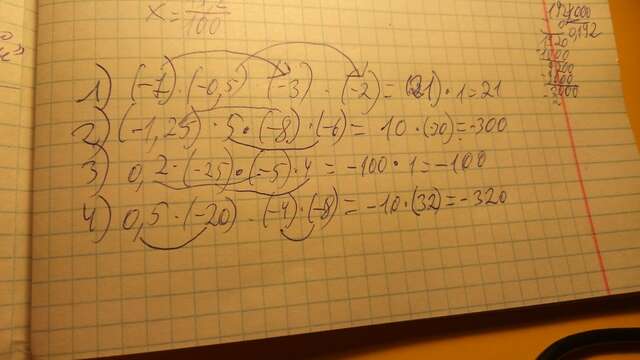 X = /100
1) (-7) · (-0,5) · (-3) · (-2) = (21) · 1 = 21
2) (-1,25) · 5 · (-8) · (-6) = 10 · (-30) = -300
3) 0,2 · (-25) · (-5) · 4 = -100 · 1 = -100
4) 0,5 · (-20) · (-4) · (-8) = -10 · (32) = -320
0,192